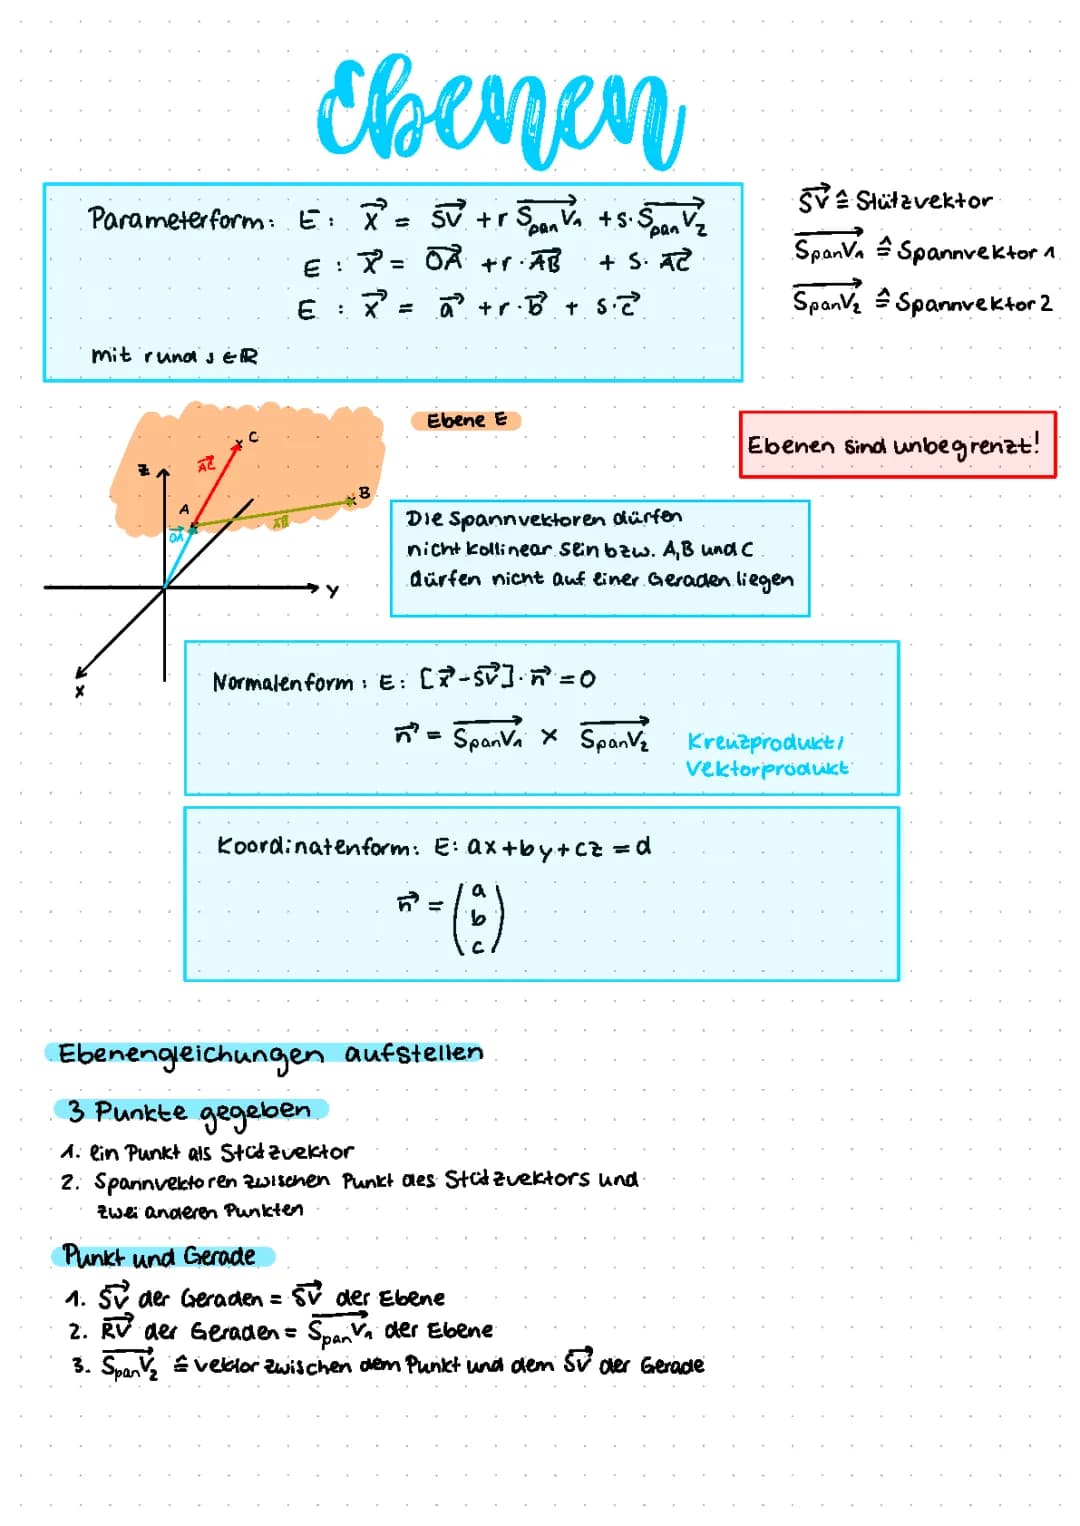 Ebenen
Parameterform: E: x⃗ = SV⃗ + r SpanV₁⃗ + s · SpanV₂⃗
E : x⃗ = OA⃗ + r · AB⃗ + s · AC⃗
E : x⃗ = a⃗ + r · b⃗ + s · c⃗
mit r und s ∈ ℝ
SV⃗ ≙ Stützvektor
SpanV₁⃗ ≙ Spannvektor 1
SpanV₂⃗ ≙ Spannvektor 2
Ebene E
Ebenen sind unbegrenzt!
z
AC⃗
C
A
B
OA⃗
AB⃗
y
x
Die Spannvektoren dürfen
nicht kollinear sein bzw. A, B und C
dürfen nicht auf einer Geraden liegen
Normalenform : E: [x⃗ - SV⃗] · n⃗ = 0
n⃗ = SpanV₁⃗ × SpanV₂⃗
Kreuzprodukt/
Vektorprodukt
Koordinatenform: E: ax + by + cz = d
n⃗ = (a b c)
Ebenengleichungen aufstellen
3 Punkte gegeben
1. ein Punkt als Stützvektor
2. Spannvektoren zwischen Punkt des Stützvektors und
zwei anderen Punkten
Punkt und Gerade
1. SV⃗ der Geraden = SV⃗ der Ebene
2. RV⃗ der Geraden = SpanV₁⃗ der Ebene
3. SpanV₂⃗ ≙ Vektor zwischen dem Punkt und dem SV⃗ der Gerade